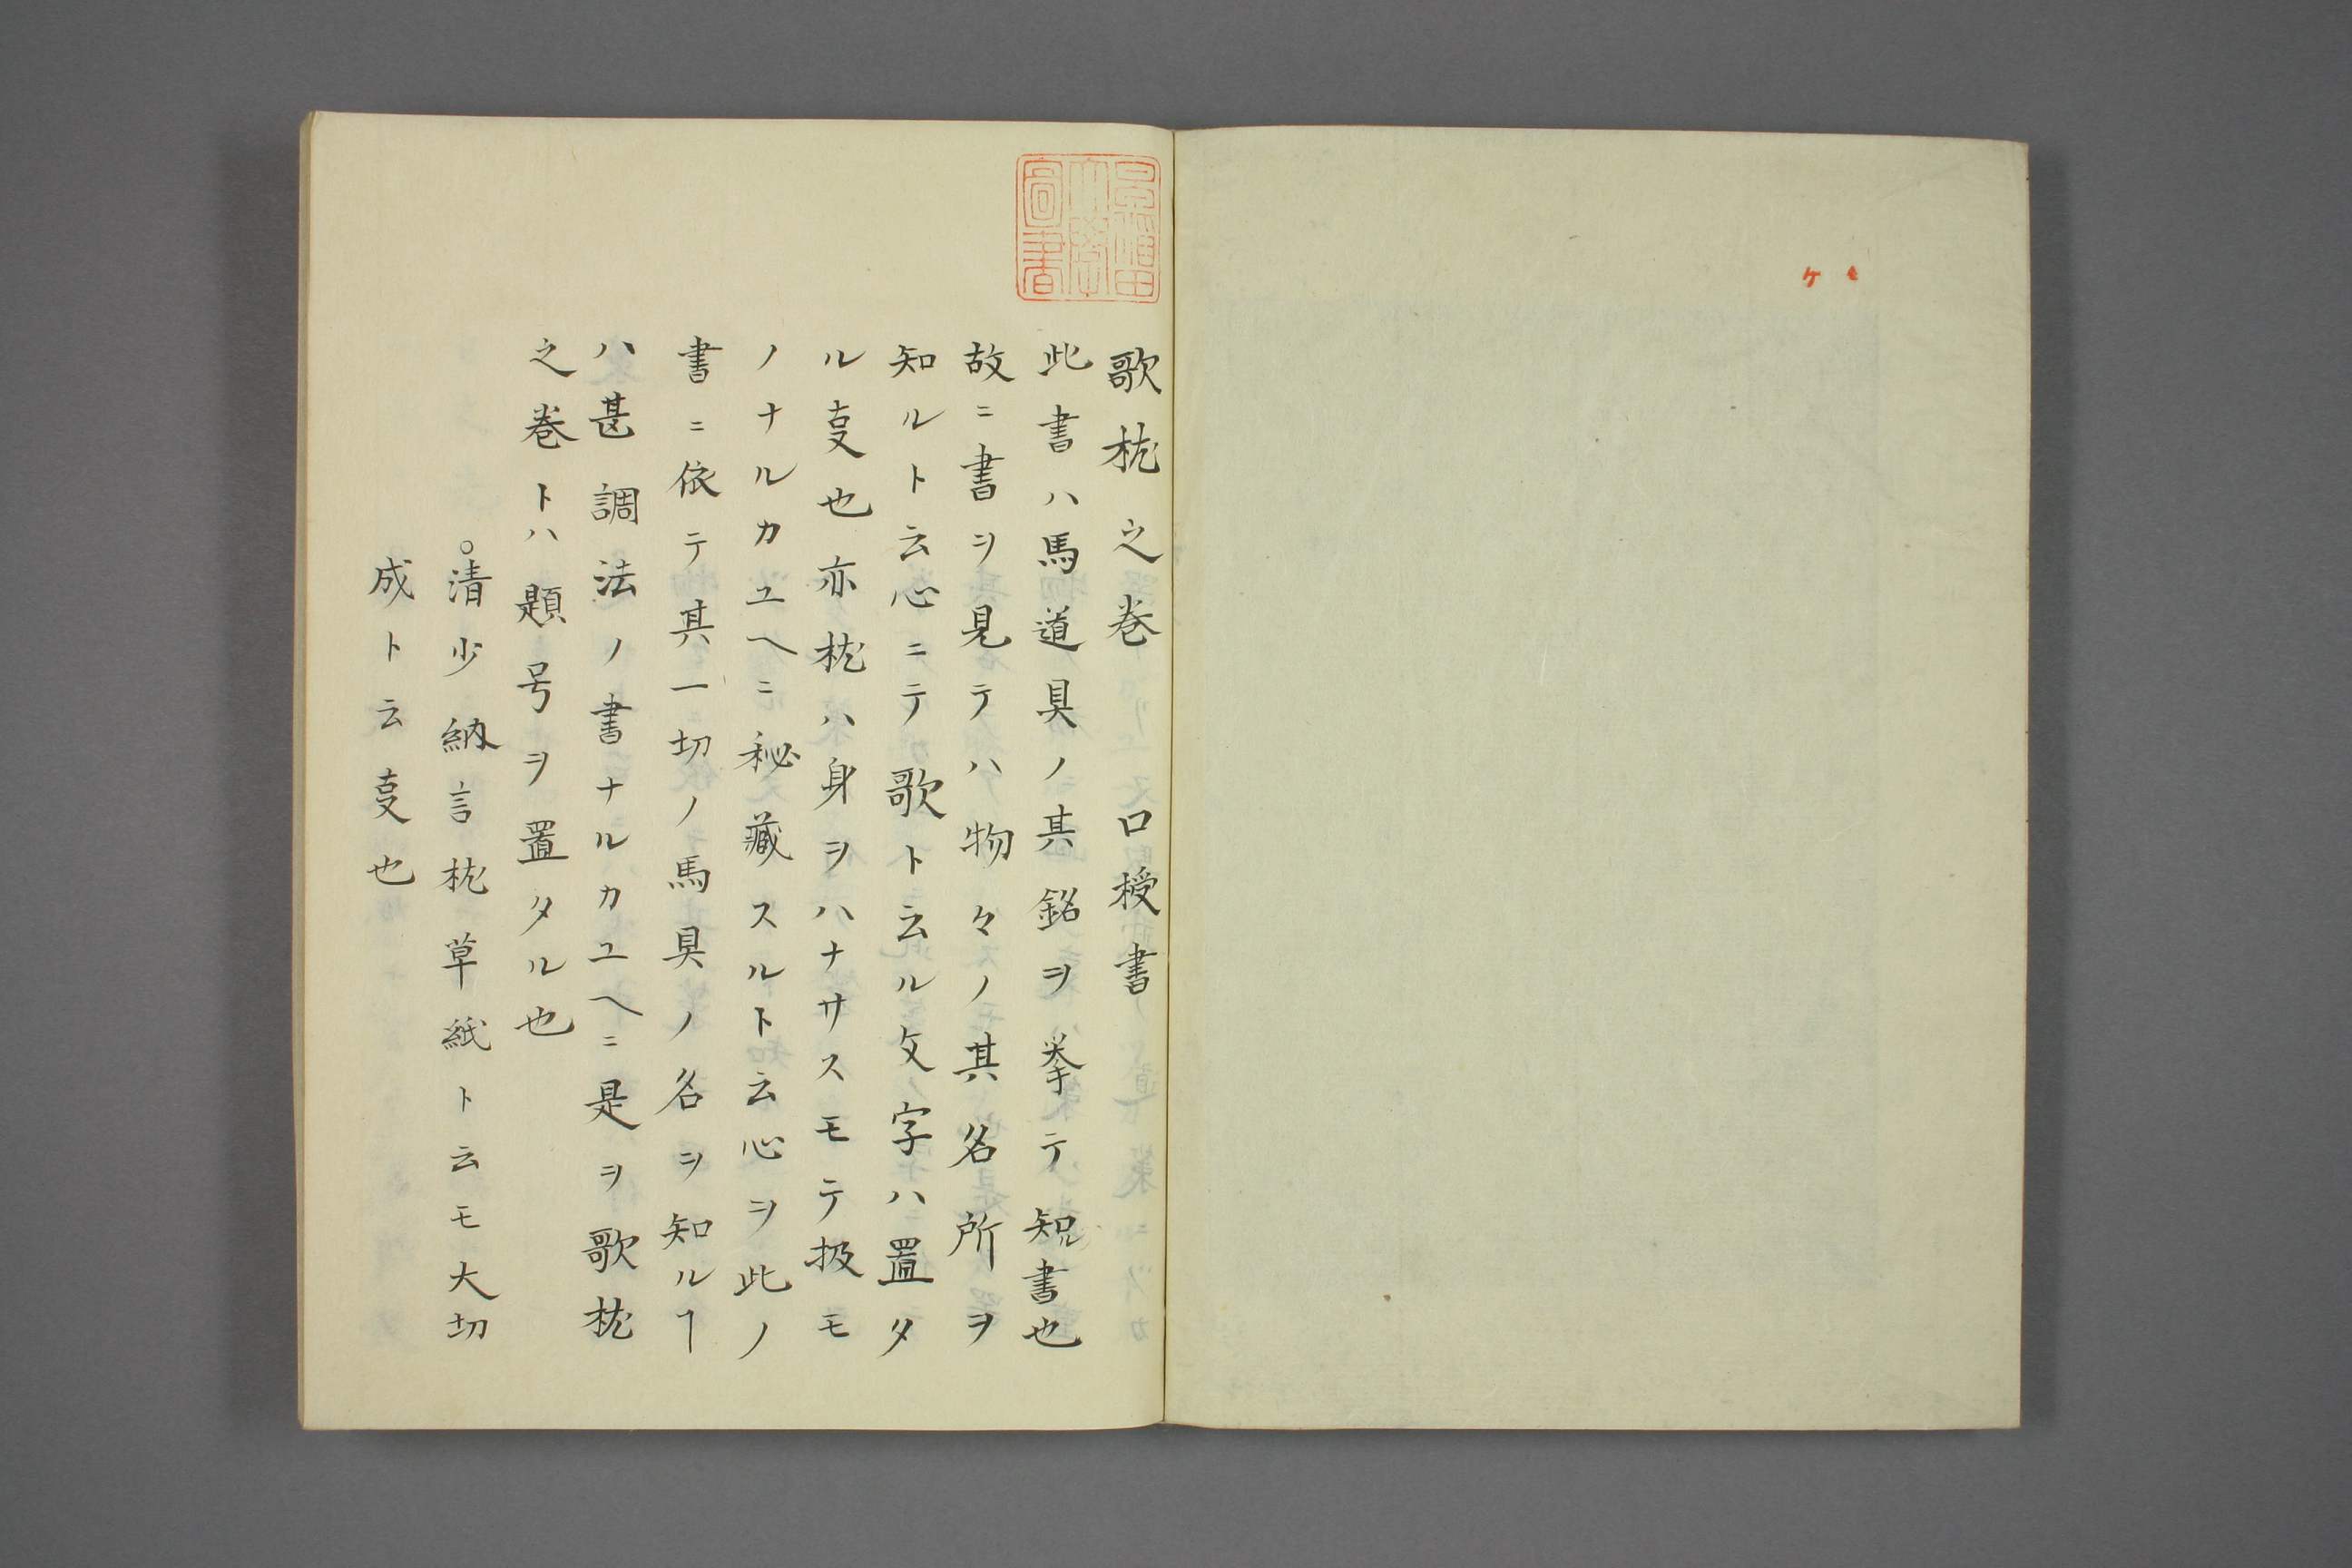 歌枕之巻　口授書
此書ハ馬道具ノ其銘ヲ挙テ知ル書也
故ニ書ヲ見テハ物々ノ其名所ヲ
知ルト云心ニテ歌ト云ル文字ハ置タ
ル叓也亦枕ハ身ヲハナサスモテ扱モ
ノナルカユヘニ秘蔵スルト云心ヲ此ノ
書ニ依テ其一切ノ馬具ノ名ヲ知ルヿ
ハ甚調法ノ書ナルカユヘニ是ヲ歌枕
之巻トハ題号ヲ置タル也
○清少納言枕草紙ト云モ大切
成ト云叓也
早稲田大学図書